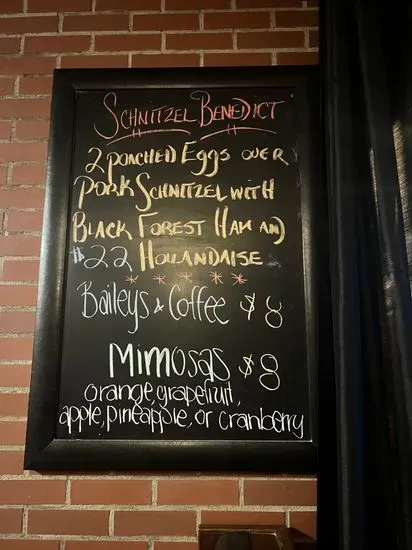 Schnitzel Benedict
2 poached Eggs over
Pork Schnitzel with
Black Forest Ham and
$22 Hollandaise
* * * * *
Baileys & Coffee $8
Mimosas $8
orange, grapefruit,
apple, pineapple, or cranberry